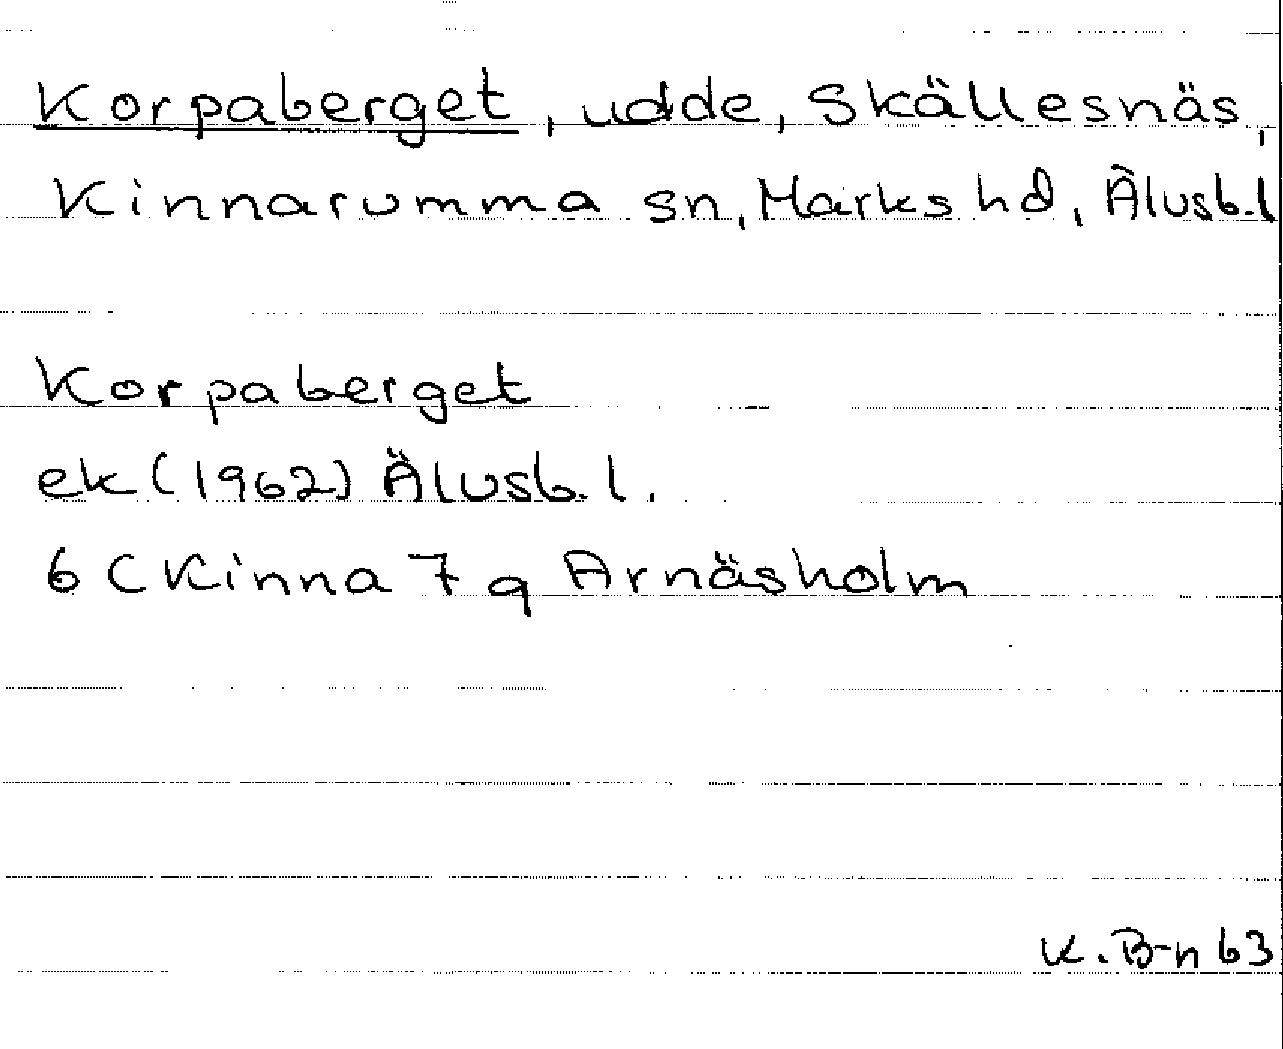 Korpaberget, udde, Skällesnäs,
Kinnarumma sn, Marks hd, Älvsb.l
Korpaberget
ek (1962) Älvsb. l.
6 C Kinna 7 q Arnäsholm
K. B-n 63